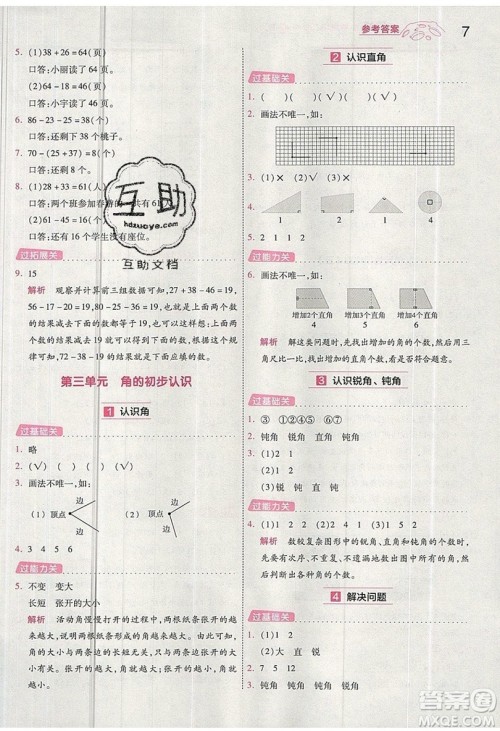 参考答案
7
5. (1)38+26=64(页)
口答:小丽读了64页。
(2)64-16=48(页)
口答:小宇读了48页。
6. 86-23-25=38(个)
口答:还剩下38个桃子。
7. 70-(25+37)=8(个)
口答:还剩8个。
8. (1)28+33=61(人)
口答:两个班参加春游的一共有61人。
口答:还有16个学生没有座位。
过拓展关
9. 15
解析 观察并计算前三组数据可知,27+38-46=19,
56-17-20=19,28+33-42=19,上面两个数
的和减去下面的数都等于19,或上面的数减去
下面两个数的结果都等于19,根据这个规
律可知,32就是下面应填的数。
第三单元 角的初步认识
1 认识角
过基础关
1. 略
2. (√) ( ) ( ) (√) (√)
3. 画法不唯一,如:
(1) 顶点 边 边 (2) 顶点 边 边
4. 3 4 5 6
过能力关
5. 不变 变大
长短 张开的大小
解析 活动角慢慢打开的过程,两根纸条张开的越
来越大,形成的角也越来越大。角的大小与角的
两条边的长短无关,与两条边张开的大小有关,
张开越大,角就越大。
2 认识直角
过基础关
1. ( ) ( ) (√) ( ) (√)
2. 画法不唯一,如:
3. (√) ( ) (√) (√)
4. 1 2 4 4
5. 1 2 1 2
过能力关
6. 画法不唯一,如:
增加2个直角 增加3个直角 增加4个直角
解析 解决这类问题时,可以先尝试着画一画,再数
一数增加的直角个数。
3 认识锐角、钝角
过基础关
1. ③ ①②⑤⑦ ④⑥
2. 钝角 锐角 直角 钝角
3. (1)2 1
(2)2 2
(3)锐 钝 直 钝
过能力关
4. (1)1 2 1 (2)3 1 5 2
解析 数较复杂图形中的锐角、直角和钝角的个数时,要
先弄清次序,不重复、不遗漏地数出图形中
各类角的个数。
4 解决问题
过基础关
1. (1)2 1
(2)大 直 锐
2. 7 5 12
3. 钝角 锐角 钝角 锐角 钝角
互助
hdzuoye.com
互助文档
答案圈
MXQE.COM